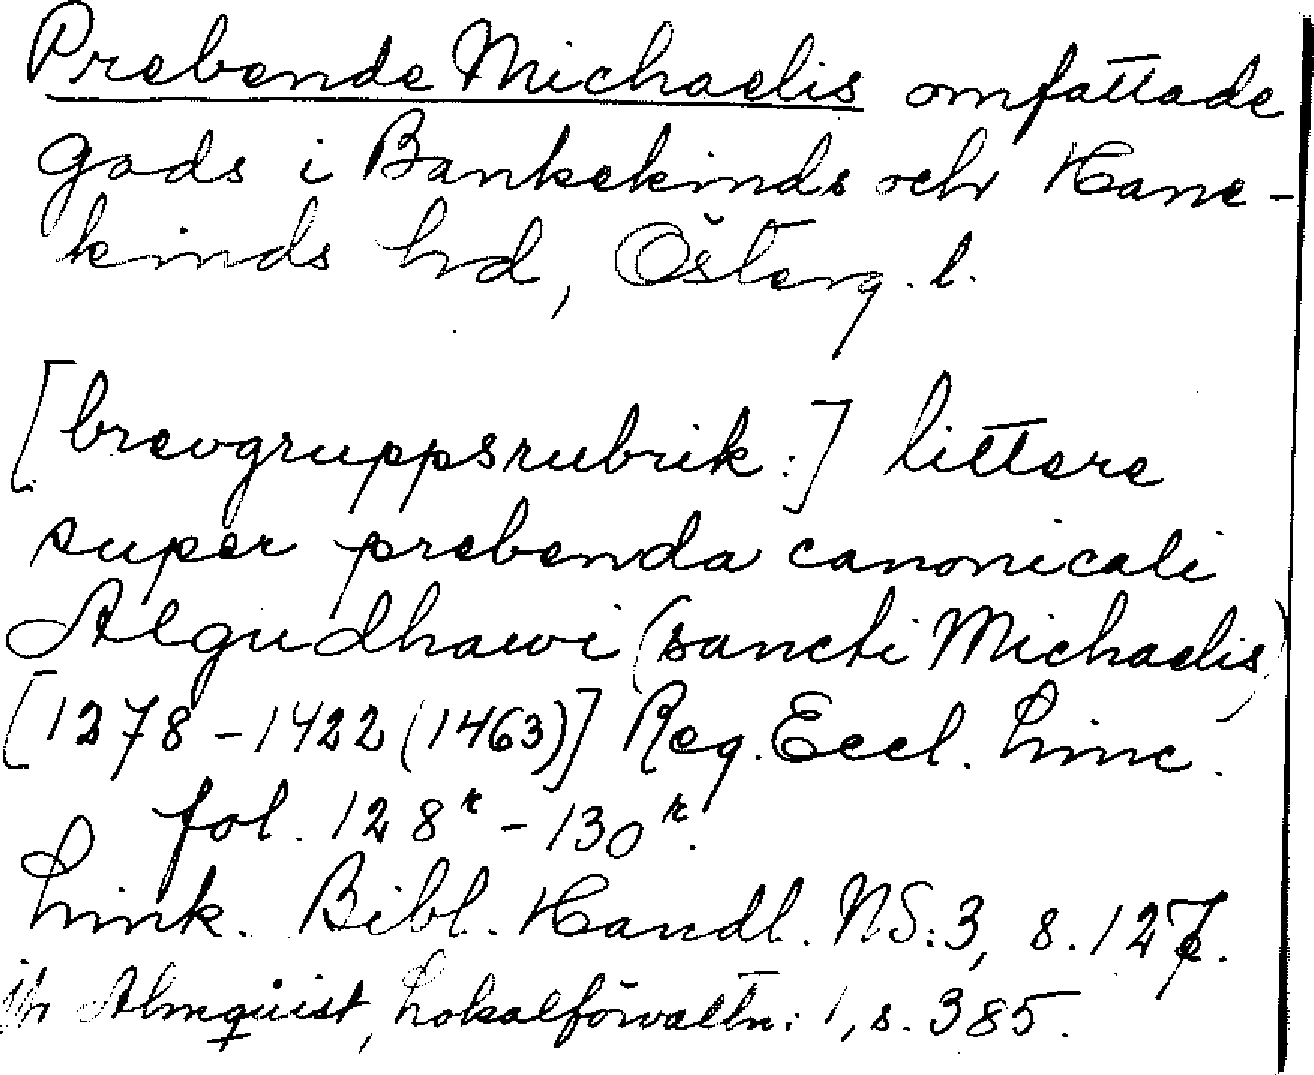 Prebende Michaelis omfattade
gods i Bankekinds och Hane-
kinds hd, Österg. l.
[brevgruppsrubrik:] littere
super prebenda canonicali
Algudhawi (sancti Michaelis)
[1278-1422 (1463)] Reg. Eccl. Linc.
fol. 128r - 130r.
Link. Bibl. Handl. NS:3, s. 127.
jfr Almquist, Lokalförvaltn: 1, s. 385.